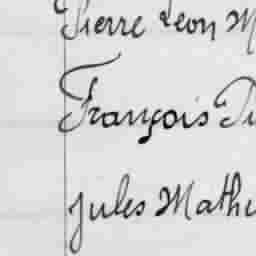 Pierre Léon M
François Pi
Jules Mathu